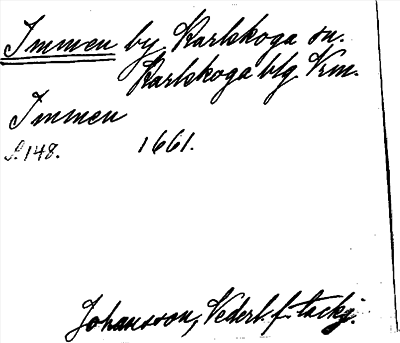 Immen by, Karlskoga sn.
Karlskoga blg Vrm.
Immen
S. 148. 1661.
Johansson, Vederl. f. tackj.